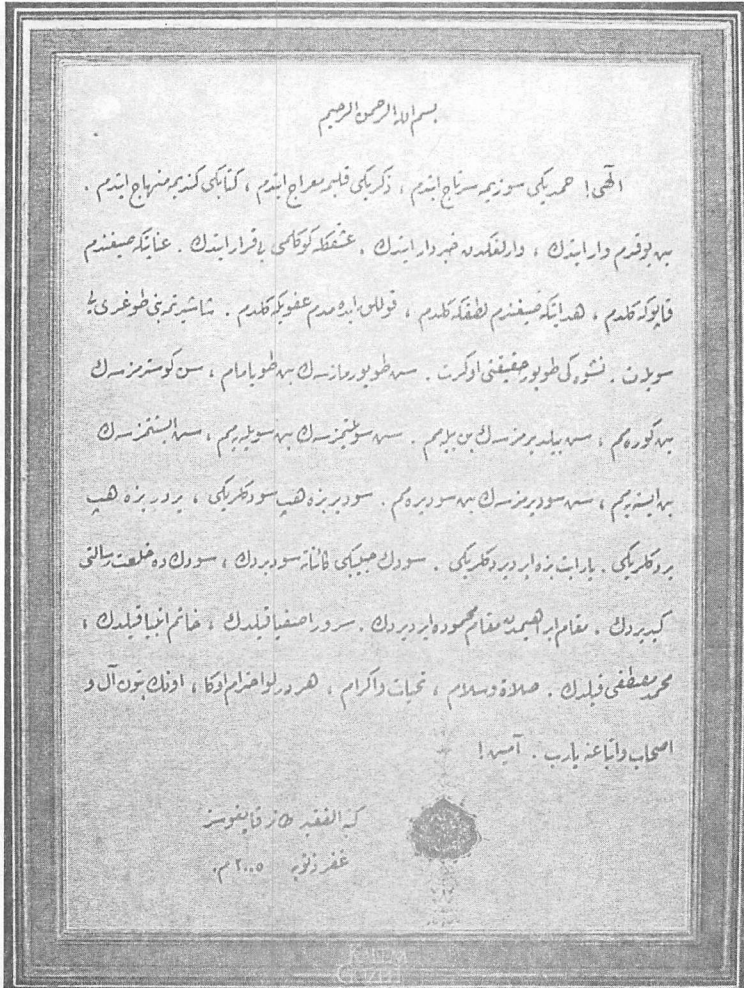 بسم الله الرحمن الرحيم
الهی! حمدیکی سوزیمه سرتاج ایتدم ، ذکریکی قلبیمه معراج ایتدم ، کتابکی کندیمه منهاج ایتدم .
بن یوقدم وار ایتدك ، وارلغکدن خبردار ایتدك ، عشقکله کوکلمی بی‌قرار ایتدك . عنایتکه صیغندم
قاپوکه کلدم ، هدایتکه صیغندم لطفکه کلدم ، قوللق ایده‌مدم عفویکه کلدم . شاشیرتمه بنی طوغری‌یی
سویلت . نشوه‌کی طویور حقیقتی اوکرت . سن طویورمازسه‌ك بن طویامام ، سن کوسترمزسه‌ك
بن کوره‌مم ، سن بیلدیرمزسه‌ك بن بیله‌مم . سن سویلتمزسه‌ك بن سویلیه‌مم ، سن ایستتمزسه‌ك
بن ایستیه‌مم ، سن سودیرمزسه‌ك بن سودیره‌مم . سودیر بزه هپ سودکلریکی ، یردیر بزه هپ
یردکلریکی . یار ایت بزه ایردیردکلریکی . سودك حبیبکی کائناته سودیردك ، سودك ده خلعت رسالتی
کیدیردك . مقام ابرهیمدن مقام محموده ایردیردك . سرور اصفیا قیلدك ، خاتم انبیا قیلدك ،
محمد مصطفی قیلدك . صلاة وسلام ، تحیات واکرام ، هر درلو احترام اوکا ، اونك بتون آل و
اصحاب واتباعنه یارب . آمین !
کتبه الفقیر قایغوسز
غفر ذنوبه ۲۰۰۵ م.
KALEM
GÜZELİ